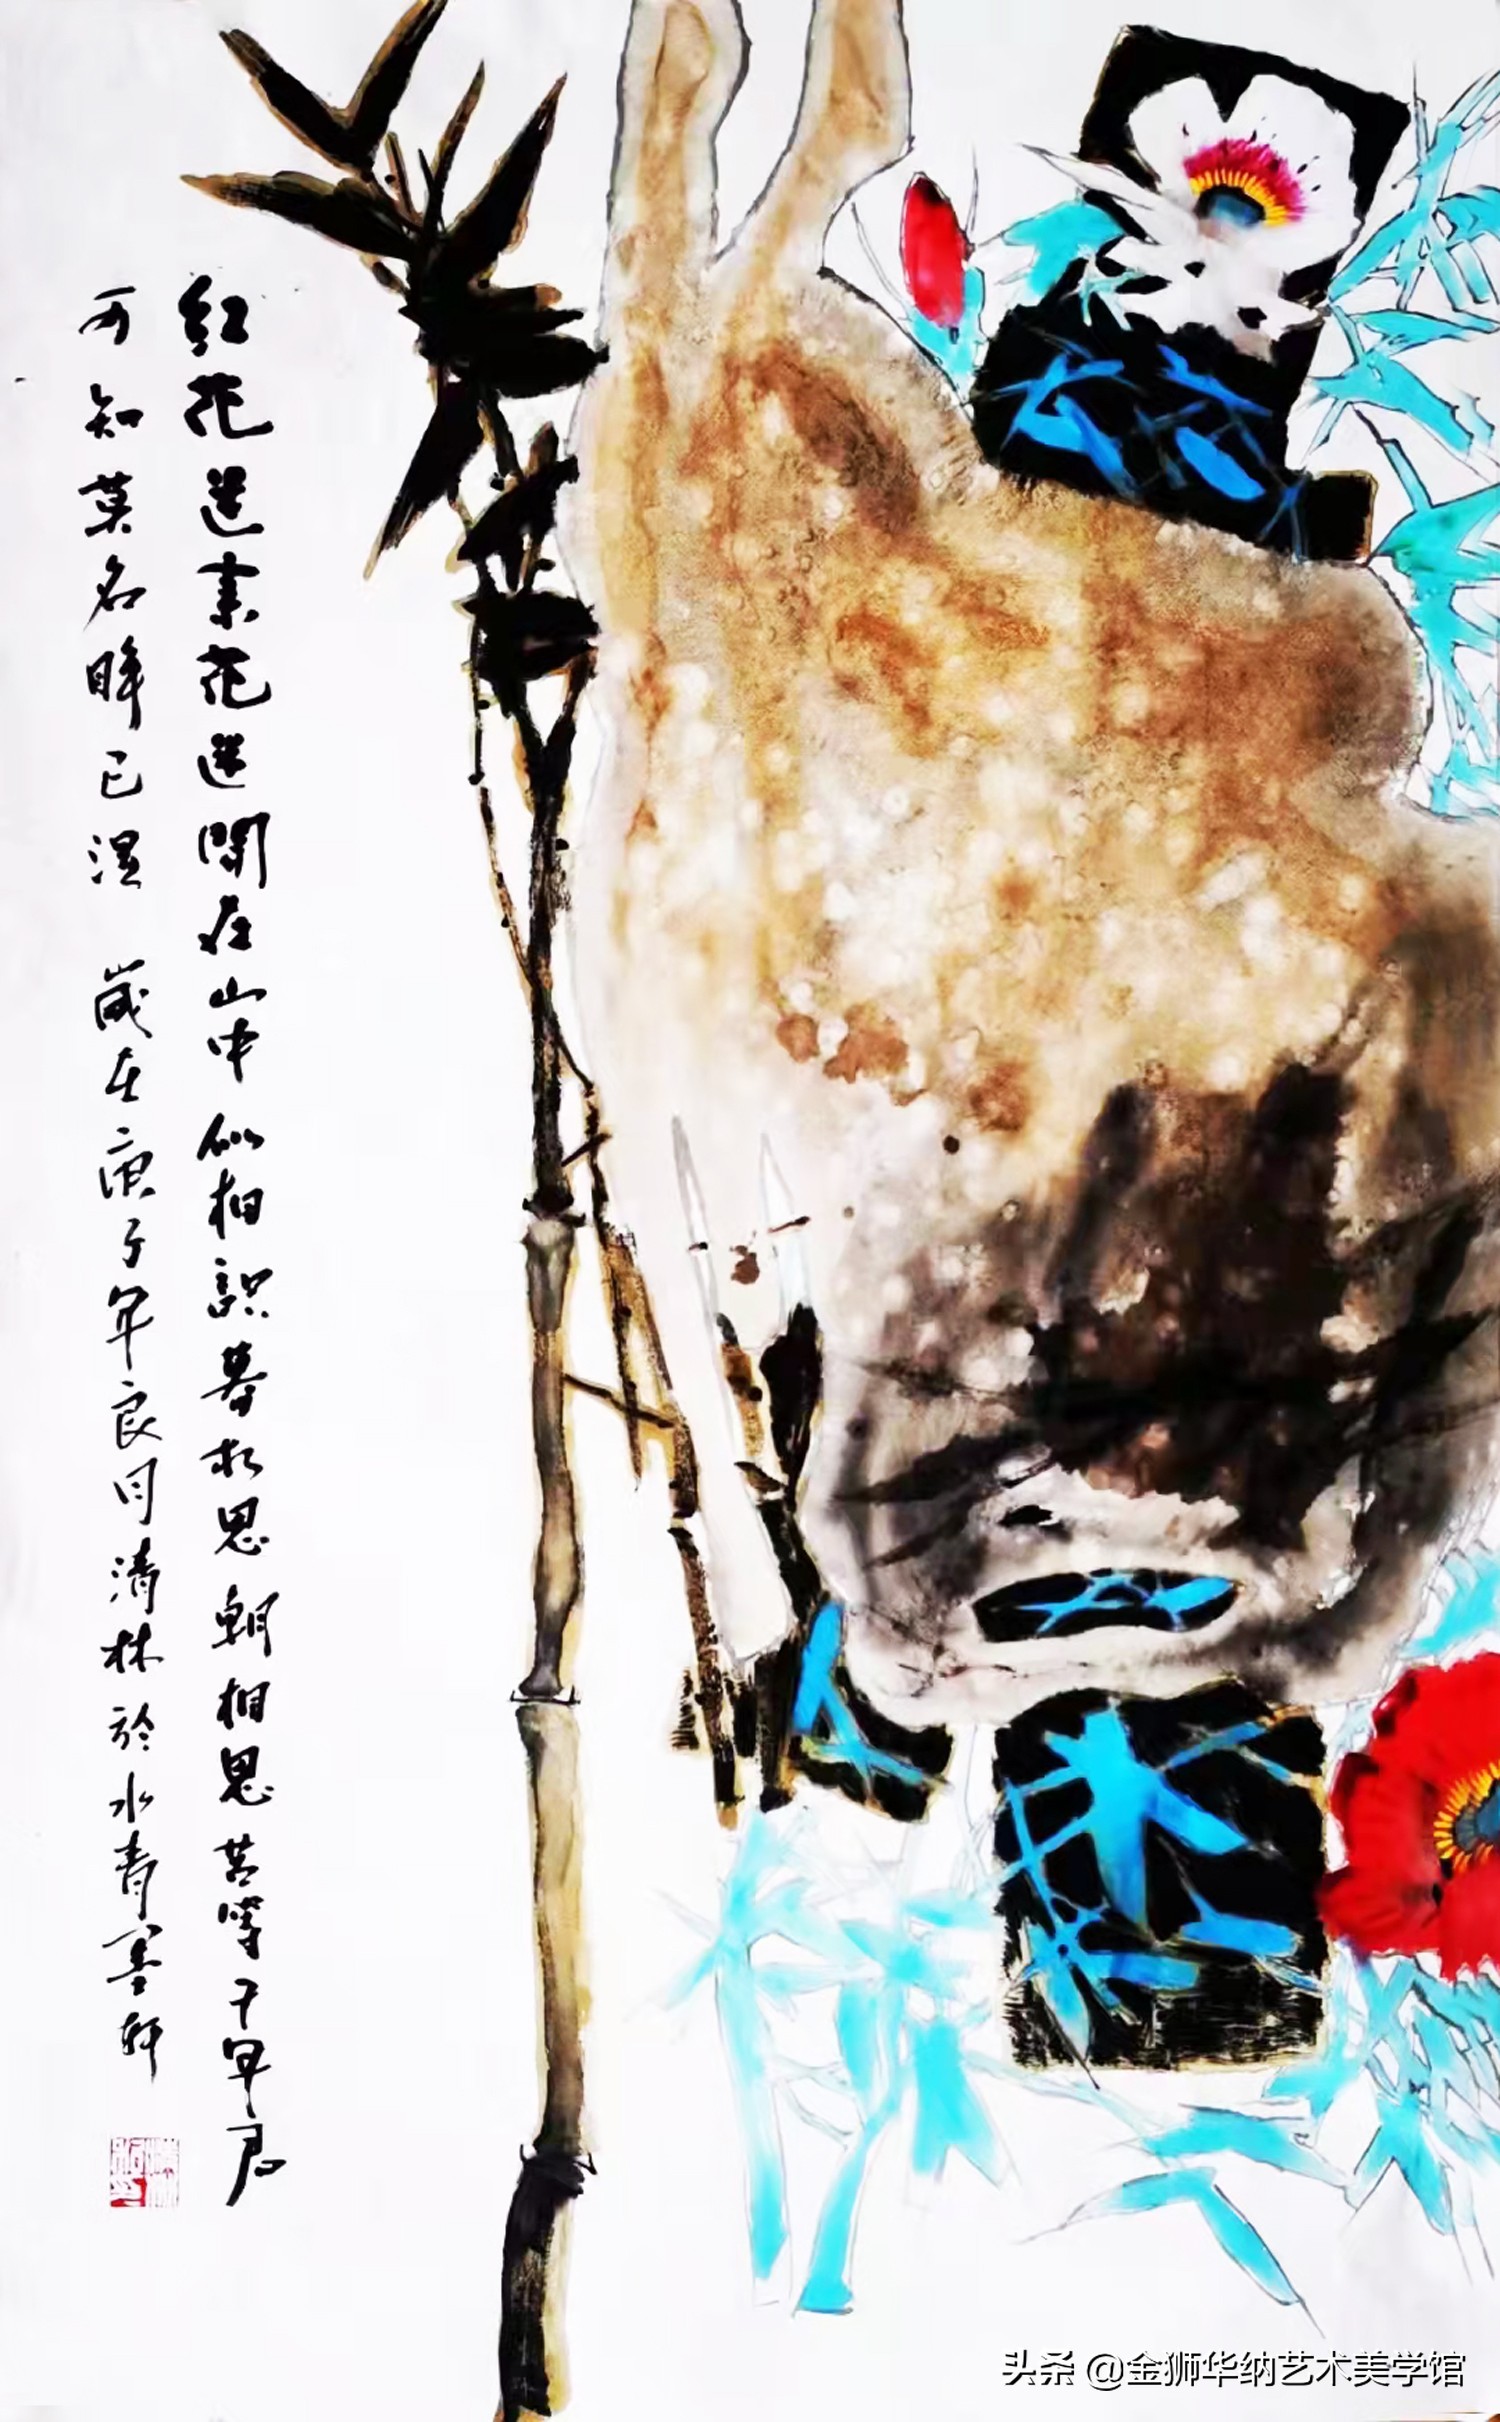 红花迷素花迷開在山中似相识暮相思朝相思苦等千年君
可知莫名眸已湿 歲在庚子年良月清林於水青墨轩
头条 @金狮华纳艺术美学馆